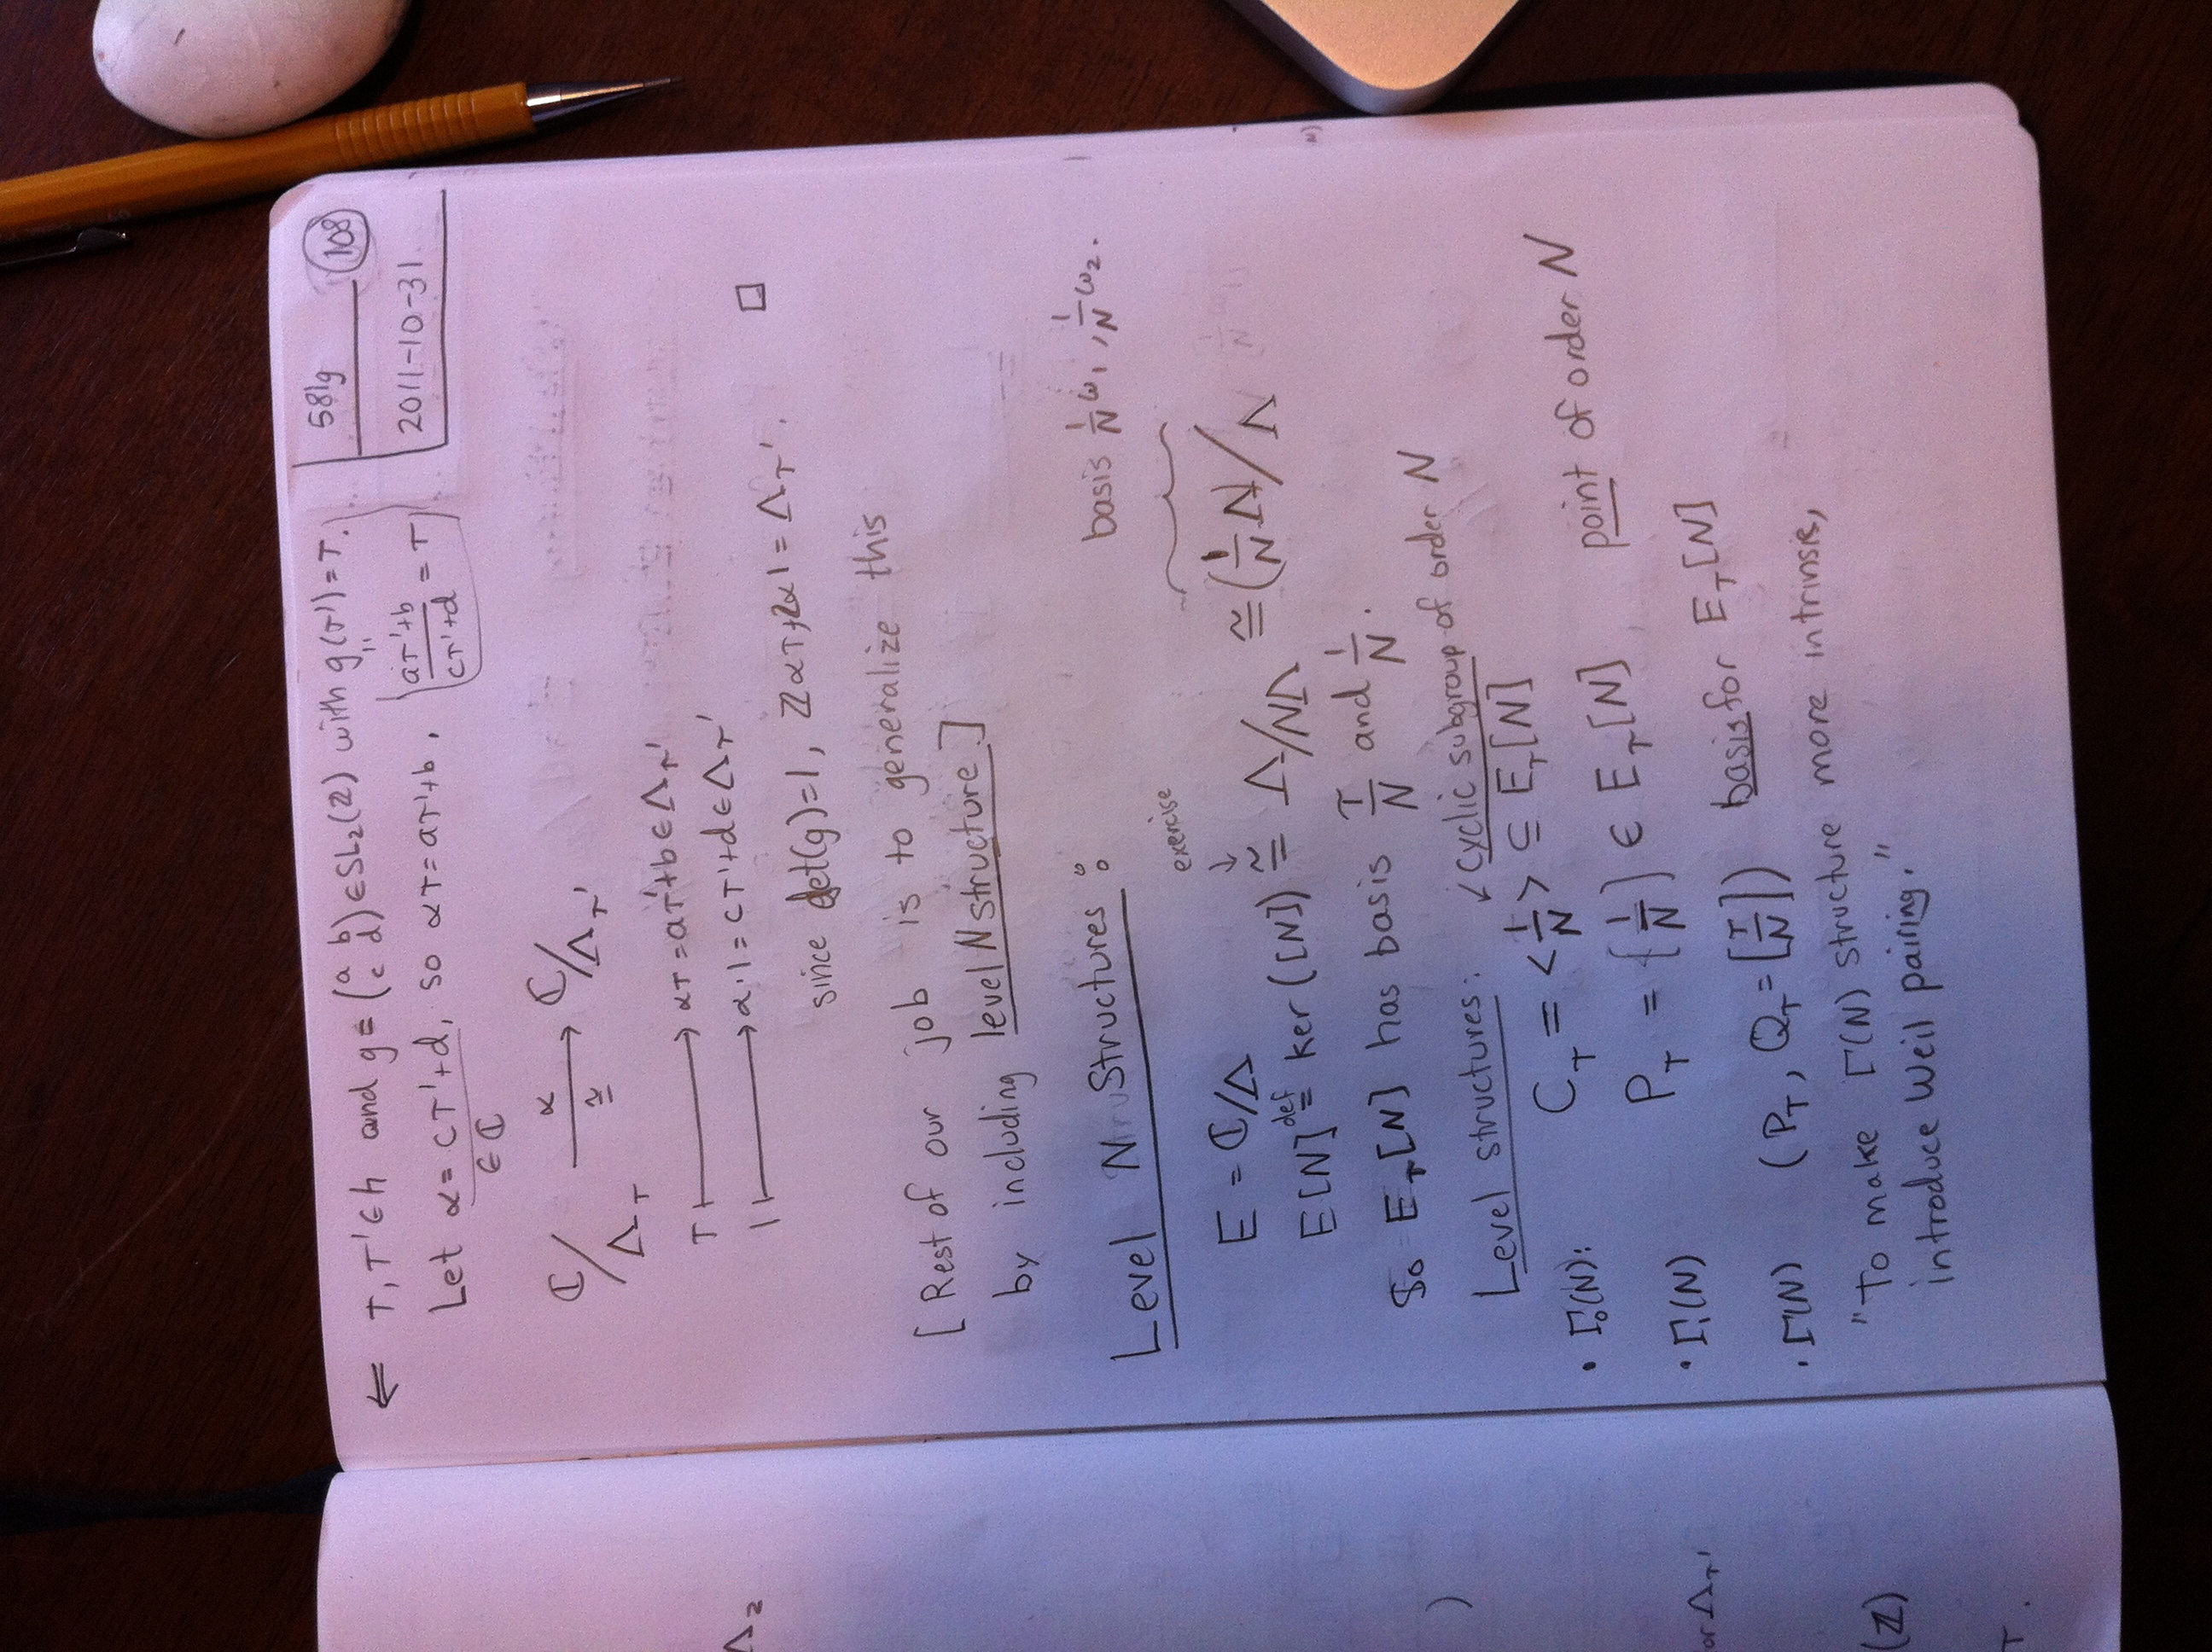 581g 108
2011-10-31
⇐ τ, τ' ∈ h and g = (a b c d) ∈ SL₂(Z) with g(τ') = τ.
" aτ'+b / cτ'+d = τ
Let α = cτ'+d, so ατ = aτ'+b,
∈ ℂ
ℂ/Λ_τ —α/≅→ ℂ/Λ_τ'
τ ↦ ατ = aτ'+b ∈ Λ_τ'
1 ↦ α·1 = cτ'+d ∈ Λ_τ'
since det(g)=1, Zατ+Zα1 = Λ_τ'. □
[Rest of our job is to generalize this
by including level N structure.]
Level N Structures:
basis 1/N ω₁, 1/N ω₂.
exercise
E = ℂ/Λ
E[N] def= ker([N]) ≅ Λ/NΛ ≅ (1/N Λ)/Λ
So E_τ[N] has basis τ/N and 1/N.
Level structures: ↙ cyclic subgroup of order N
• Γ₀(N): C_τ = <1/N> ⊆ E_τ[N]
• Γ₁(N) P_τ = [1/N] ∈ E_τ[N] point of order N
• Γ(N) (P_τ, Q_τ = [τ/N]) basis for E_τ[N]
"To make Γ(N) structure more intrinsic,
introduce Weil pairing."
Λ₂
)
or Λ_τ'
(Z)
τ.